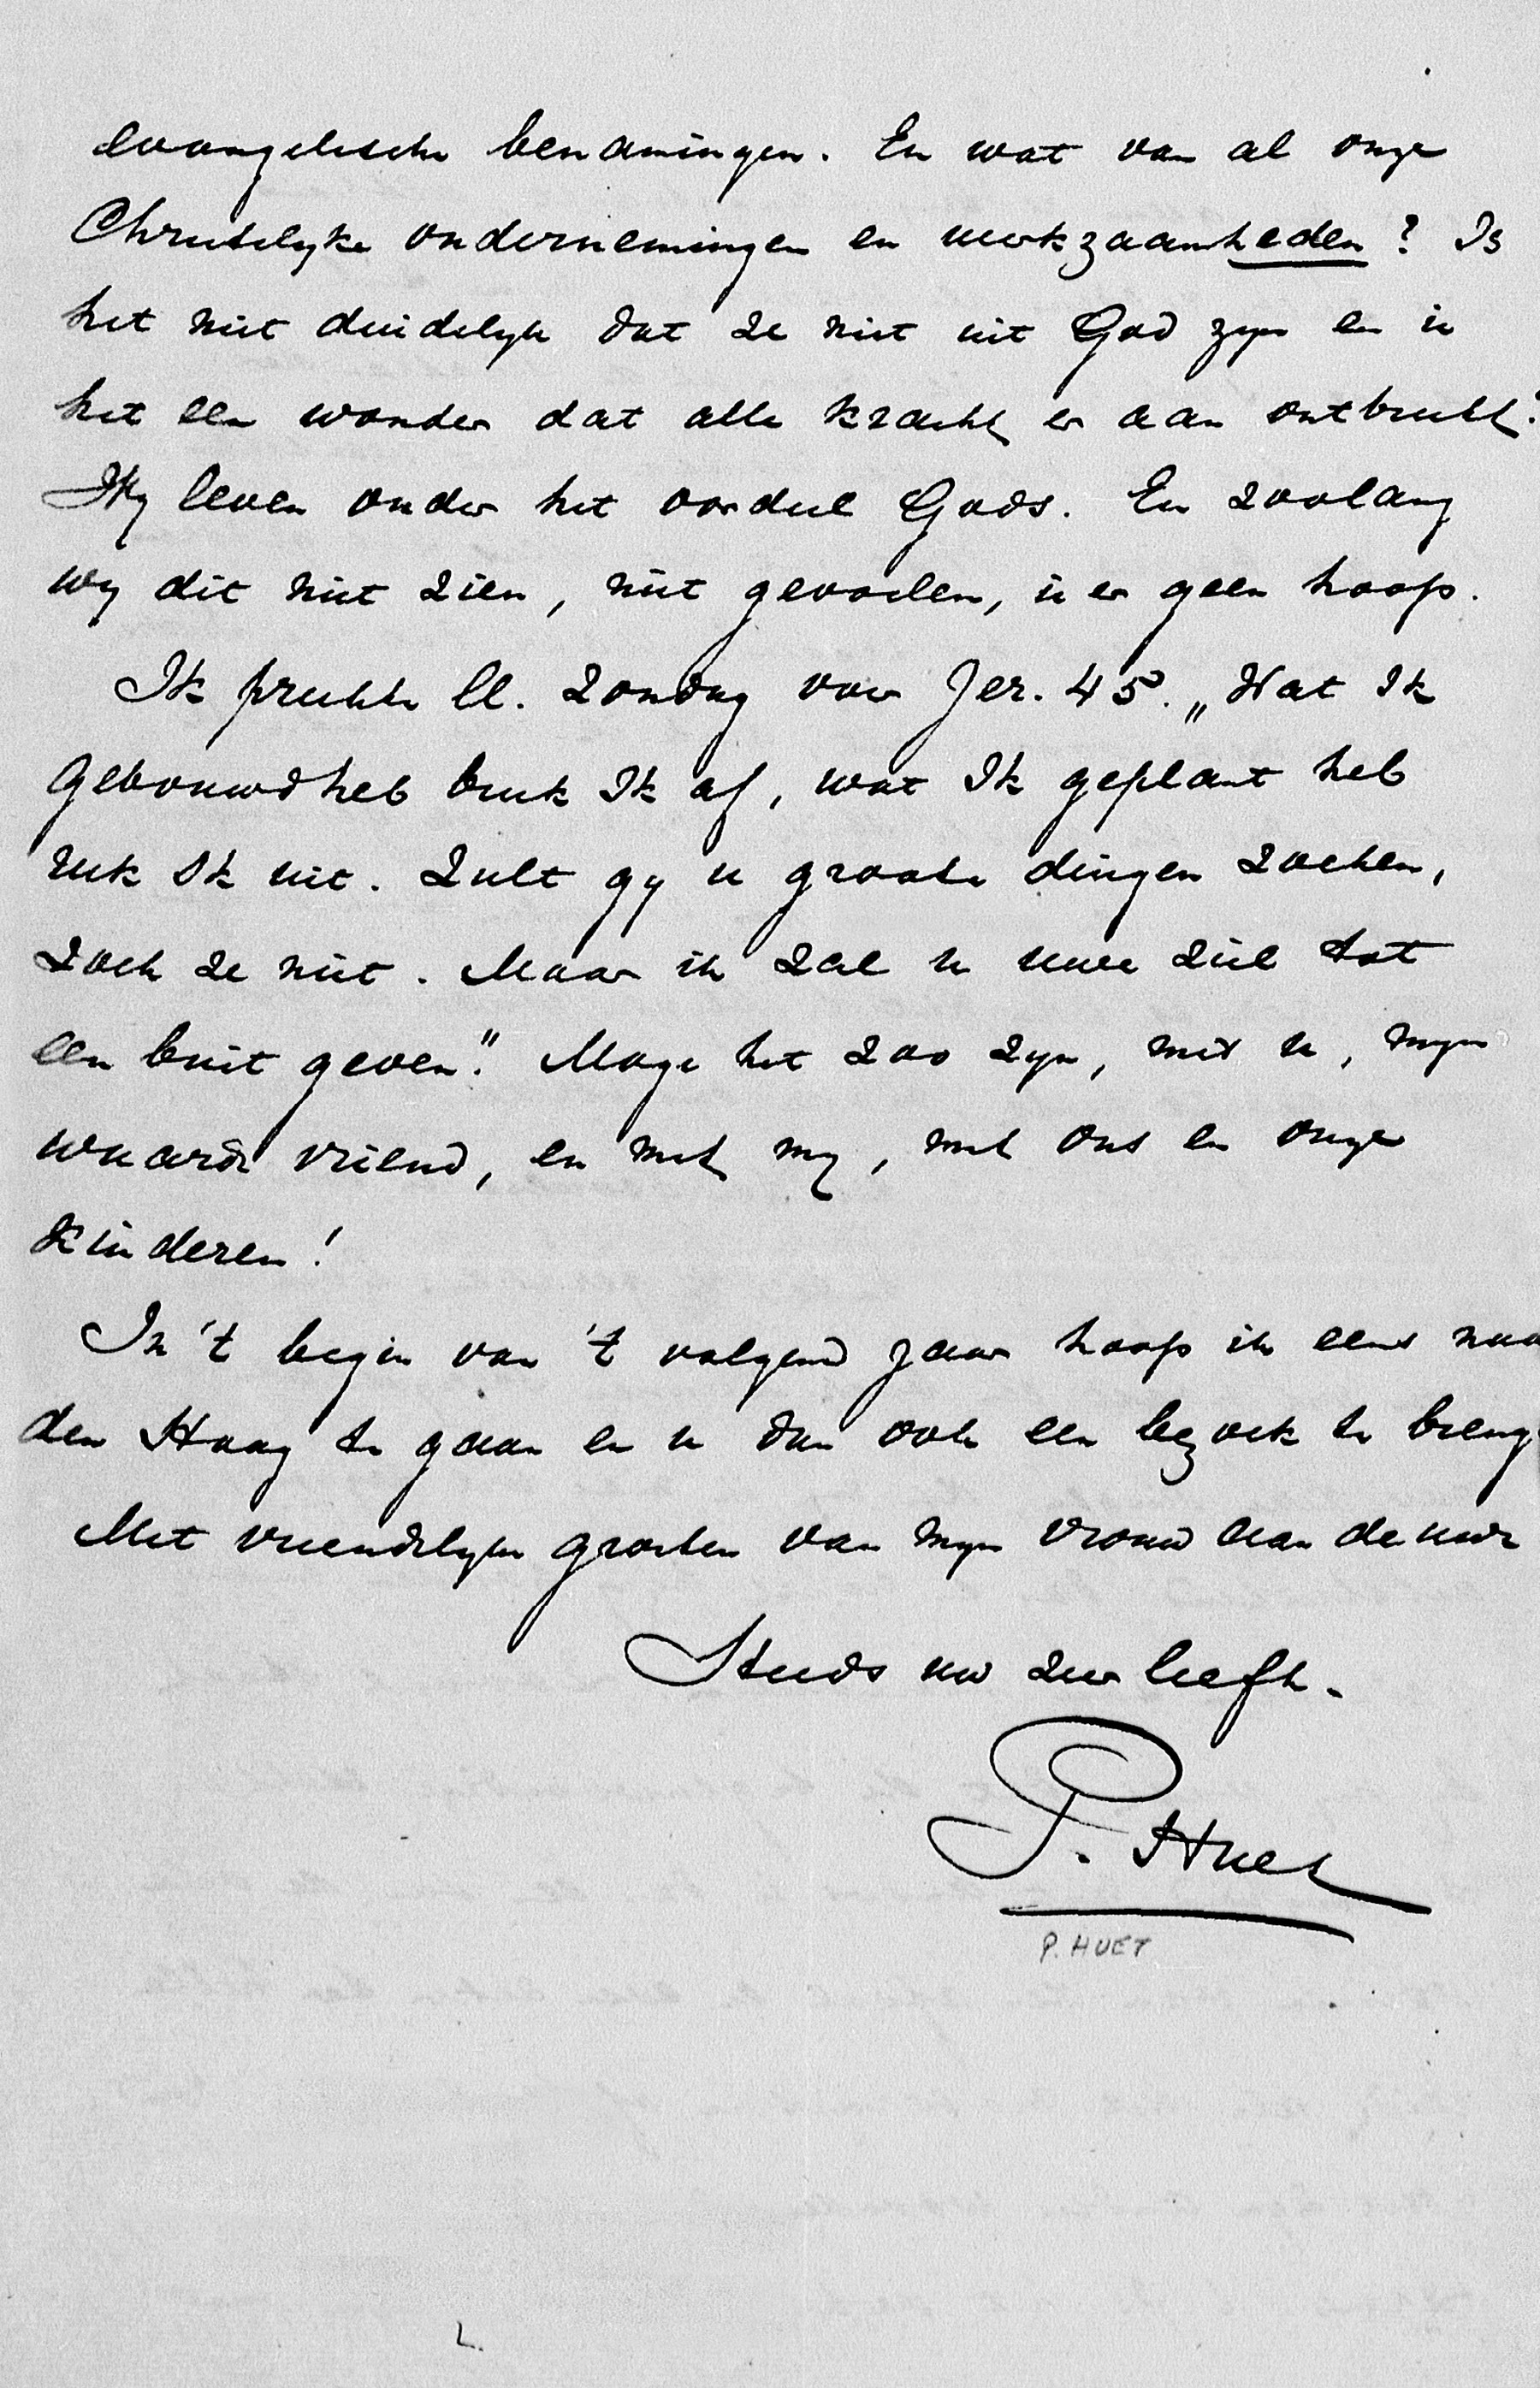 evangelische benamingen. En wat van al onze
Christelyke ondernemingen en werkzaamheden? Is
het niet duidelyk dat ze niet uit God zyn en is
het een wonder dat alle kracht er aan ontbreekt?
Wy leven onder het oordeel Gods. En zoolang
wy dit niet zien, niet gevoelen, is er geen hoop.
Ik preekte ll. Zondag over Jer. 45. „Wat Ik
gebouwd heb breek Ik af, wat Ik geplant heb
ruk Ik uit. Zult gy u groote dingen zoeken,
zoek ze niet. Maar ik zal u uwe ziel tot
een buit geven." Moge het zoo zyn, met u, myn
waarde vriend, en met my, met ons en onze
kinderen!
In 't begin van 't volgend jaar hoop ik eens naa
den Haag te gaan en u dan ook een bezoek te breng
Met vriendelyke groeten van myn vrouw aan de uwe
Steeds uw zeer liefh.
P. Huet
P. HUET